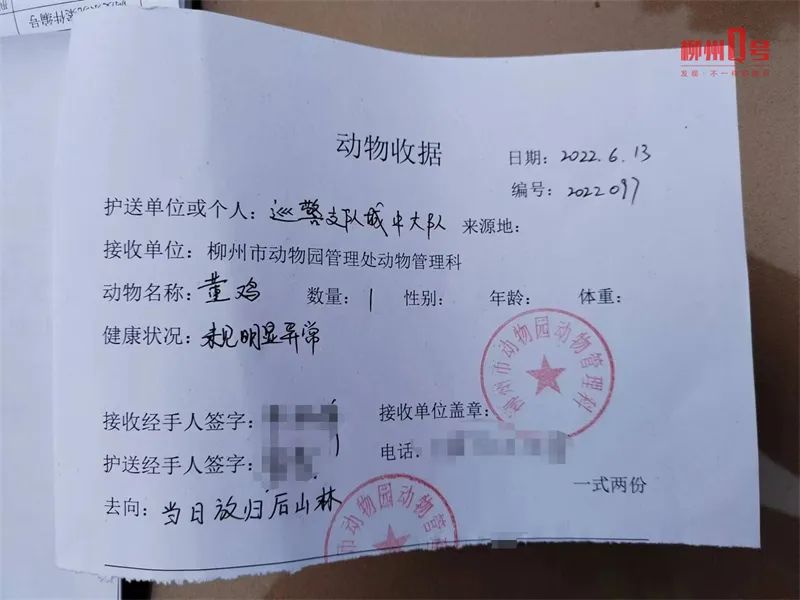 柳州1号
发现·不一样的柳州
动物收据
日期：2022.6.13
编号：2022097
护送单位或个人：巡警支队城中大队 来源地：
接收单位：柳州市动物园管理处动物管理科
动物名称：董鸡 数量：1 性别： 年龄： 体重：
健康状况：未见明显异常
柳州市动物园动物管理科
接收经手人签字： 接收单位盖章：
护送经手人签字： 电话.
一式两份
去向：当日放归后山林
市动物园动物管